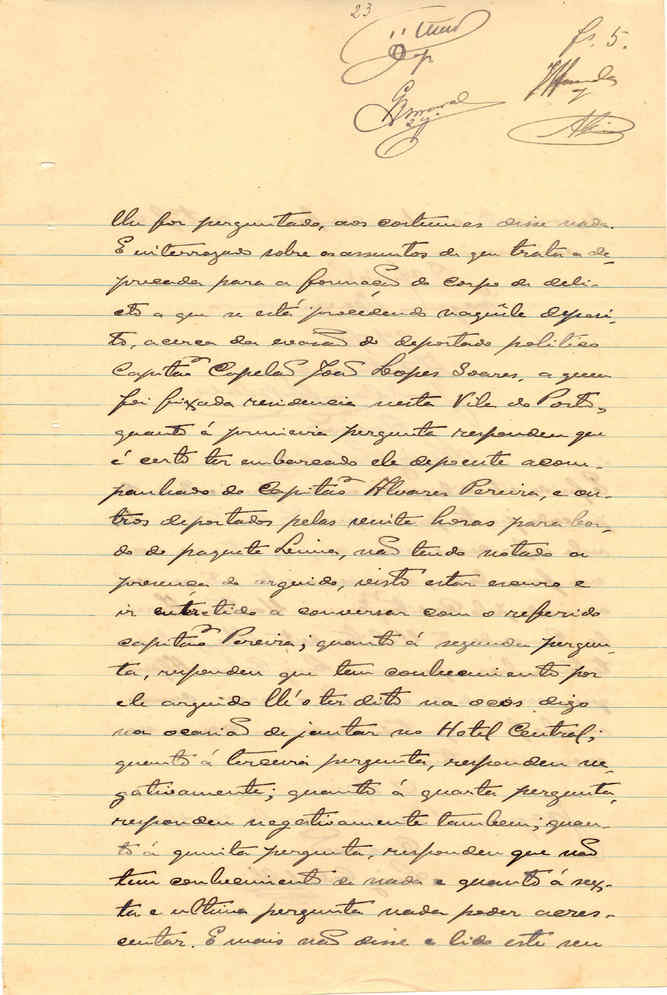 23
fs. 5.
lhe foi perguntado, aos costumes disse nada.
E interrogado sobre os assuntos de que trata a de-
precada para a formação do corpo de deli-
cto a que se está procedendo naquele deposi-
to, acerca da evasão do deportado politico
Capitão Capelão João Lopes Soares, a quem
foi fixada residencia nesta Vila do Porto,
quanto á primeira pergunta respondeu que
é certo ter embarcado ele depoente acom-
panhado do Capitão Alvares Pereira, e ou-
tros deportados pelas vinte horas para bor-
do do paquete Lima, não tendo notado a
presença do arguido, visto estar escuro e
ir entretido a conversar com o referido
capitão Pereira; quanto á segunda pergun-
ta, respondeu que tem conhecimento por
ele arguido lh'o ter dito na ocos digo
na ocasião de jantar no Hotel Central;
quanto á terceira pergunta, respondeu ne-
gativamente; quanto á quarta pergunta,
respondeu negativamente tambem; quan-
to á quinta pergunta, respondeu que não
tem conhecimento de nada e quanto á sex-
ta e ultima pergunta nada poder acres-
centar. E mais não disse e lido este seu